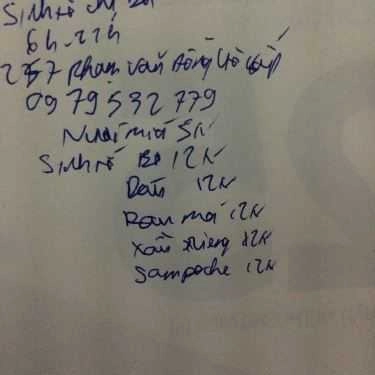 Sinh tố
6h-22h
257 Phạm Văn Đồng Gò Vấp
0979532779
Nước mía 5k
Sinh tố Bơ 12k
Dâu 12k
Rau má 12k
Xoài 12k
Sampoche 12k